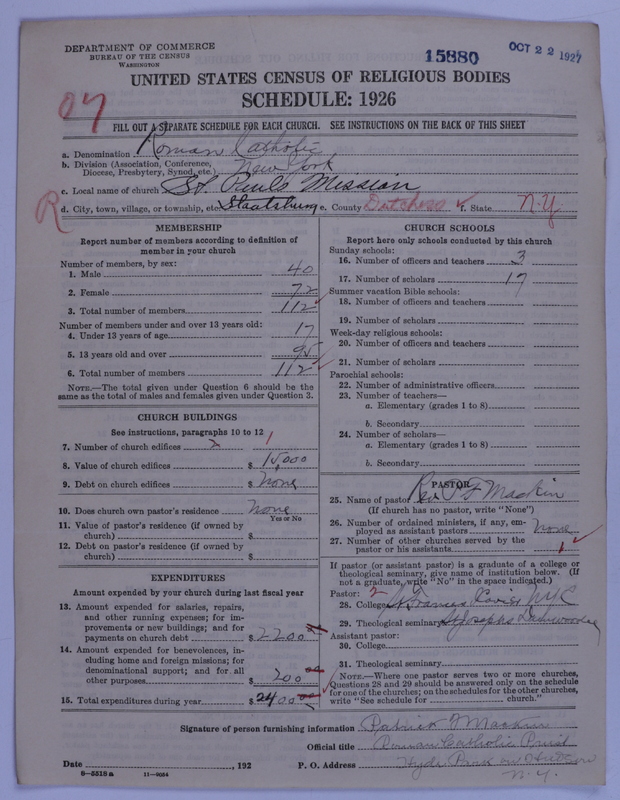 DEPARTMENT OF COMMERCE
BUREAU OF THE CENSUS
WASHINGTON
15880
OCT 22 1927
UNITED STATES CENSUS OF RELIGIOUS BODIES
SCHEDULE: 1926
07
FILL OUT A SEPARATE SCHEDULE FOR EACH CHURCH. SEE INSTRUCTIONS ON THE BACK OF THIS SHEET
a. Denomination Roman Catholic
b. Division (Association, Conference, Diocese, Presbytery, Synod, etc.) New York
c. Local name of church St. Pauls Mission
R
d. City, town, village, or township, etc. Staatsburg e. County Dutchess ✓ f. State N.Y.
MEMBERSHIP
Report number of members according to definition of
member in your church
Number of members, by sex:
1. Male 40
2. Female 72
3. Total number of members 112 ✓
Number of members under and over 13 years old:
4. Under 13 years of age 17
5. 13 years old and over 95
6. Total number of members 112 ✓
NOTE.—The total given under Question 6 should be the
same as the total of males and females given under Question 3.
CHURCH BUILDINGS
See instructions, paragraphs 10 to 12
7. Number of church edifices 2 1
8. Value of church edifices $ 15,000
9. Debt on church edifices $ None
10. Does church own pastor's residence none
Yes or No
11. Value of pastor's residence (if owned by
church) $
12. Debt on pastor's residence (if owned by
church) $
EXPENDITURES
Amount expended by your church during last fiscal year
13. Amount expended for salaries, repairs,
and other running expenses; for im-
provements or new buildings; and for
payments on church debt $ 2200 00
14. Amount expended for benevolences, in-
cluding home and foreign missions; for
denominational support; and for all
other purposes $ 200 00
15. Total expenditures during year $ 2400 00 ✓
CHURCH SCHOOLS
Report here only schools conducted by this church
Sunday schools:
16. Number of officers and teachers 3
17. Number of scholars 17
Summer vacation Bible schools:
18. Number of officers and teachers
19. Number of scholars
Week-day religious schools:
20. Number of officers and teachers
21. Number of scholars
Parochial schools:
22. Number of administrative officers
23. Number of teachers—
a. Elementary (grades 1 to 8)
b. Secondary
24. Number of scholars—
a. Elementary (grades 1 to 8)
b. Secondary
PASTOR
25. Name of pastor Rev. P J Mackin
(If church has no pastor, write "None")
26. Number of ordained ministers, if any, em-
ployed as assistant pastors none
27. Number of other churches served by the
pastor or his assistants 1 ✓
If pastor (or assistant pastor) is a graduate of a college or
theological seminary, give name of institution below. (If
not a graduate, write "No" in the space indicated.)
Pastor: 2
28. College St Francis Xavier NYC
29. Theological seminary St Josephs Dunwoodie
Assistant pastor:
30. College
31. Theological seminary
NOTE.—Where one pastor serves two or more churches,
Questions 28 and 29 should be answered only on the schedule
for one of the churches; on the schedules for the other churches,
write "See schedule for church."
Signature of person furnishing information Patrick J Mackin
Official title Roman Catholic Priest
Date , 192 P. O. Address Hyde Park on Hudson
N.Y.
8-5518a 11-9064